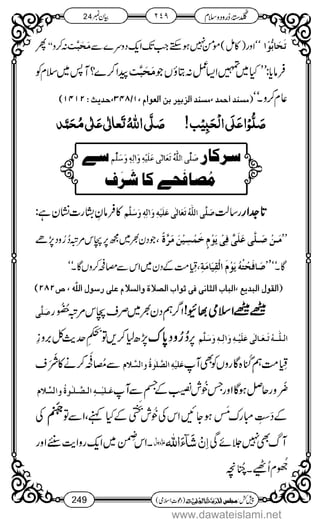 گلدستۂ درود و سلام ۲۴۹ بیان نمبر 24
تَحَابُّوْا ‘‘اور (کامل) مومن نہیں ہوسکتے جب تک ایک دوسرے سے مَحَبَّت نہ کرو۔‘‘ پھر
فرمایا: ’’کیا میں تمہیں ایسا عمل نہ بتاؤں جو مَحَبَّت پیدا کرے؟ آپس میں سلام کو
عام کرو۔‘‘ (مسند احمد ،مسند الزبیر بن العوام ،۳۴۸/۱،حدیث : ۱۴۱۲)
صَلُّوْا عَلَی الْحَبِیْب! صَلَّی اللّٰہُ تَعَالٰی عَلٰی مُحَمَّد
سرکار صَلَّی اللّٰہُ تَعَالٰی عَلَیْہِ وَاٰلِہٖ وَسَلَّم سے
مُصافَحے کا شَرَف
تاجدارِ رسالت صَلَّی اللّٰہُ تَعَالٰی عَلَیْہِ وَاٰلِہٖ وَسَلَّم کا فرمانِ بشارت نشان ہے:
’’مَنْ صَلّٰی عَلَیَّ فِیْ یَوْمٍ خَمْسِیْنَ مَرَّۃً ، جو دن بھر میں مجھ پر پچاس مرتبہ دُرُود پڑھے
گا۔‘‘ ’’صَافَحْتُہٗ یَوْمَ الْقِیَامَۃِ، قیامت کے دن میں اس سے مصافحہ کروں گا۔‘‘
(القول البدیع ،الباب الثانی فی ثواب الصلاۃ والسلام علی رسول اللّٰہ ، ص۲۸۲)
میٹھے میٹھے اسلامی بھائیو! اگر ہم دن بھر میں صرف پچاس مرتبہ حُضُور صلی
اللّٰہ تعالٰی علیہ والہ وسلم پر دُرُودِ پاک پڑھ لیا کریں تو بحکمِ حدیث کل بروزِ
قیامت ہم گناہ گاروں کو بھی آپ عَلَیْہِ الصَّلٰوۃُ وَالسَّلَام سے مُصافَحہ کرنے کا شَرَف
ضرور حاصل ہوگا اور جس خوش نصیب کے جسم سے آپ عَلَیْہِ الصَّلٰوۃُ وَالسَّلَام
کے دستِ مبارک مس ہو جائیں اس کی خوش بختی کے کیا کہنے، اسے تو جہنم کی
آگ بھی نہیں جلائے گی اِنْ شَآءَاللّٰہ عزوجل۔ اس ضمن میں ایک روایت سنئے اور
جھوم اُٹھئے۔ چُنانچہ
249
www.dawateislami.net